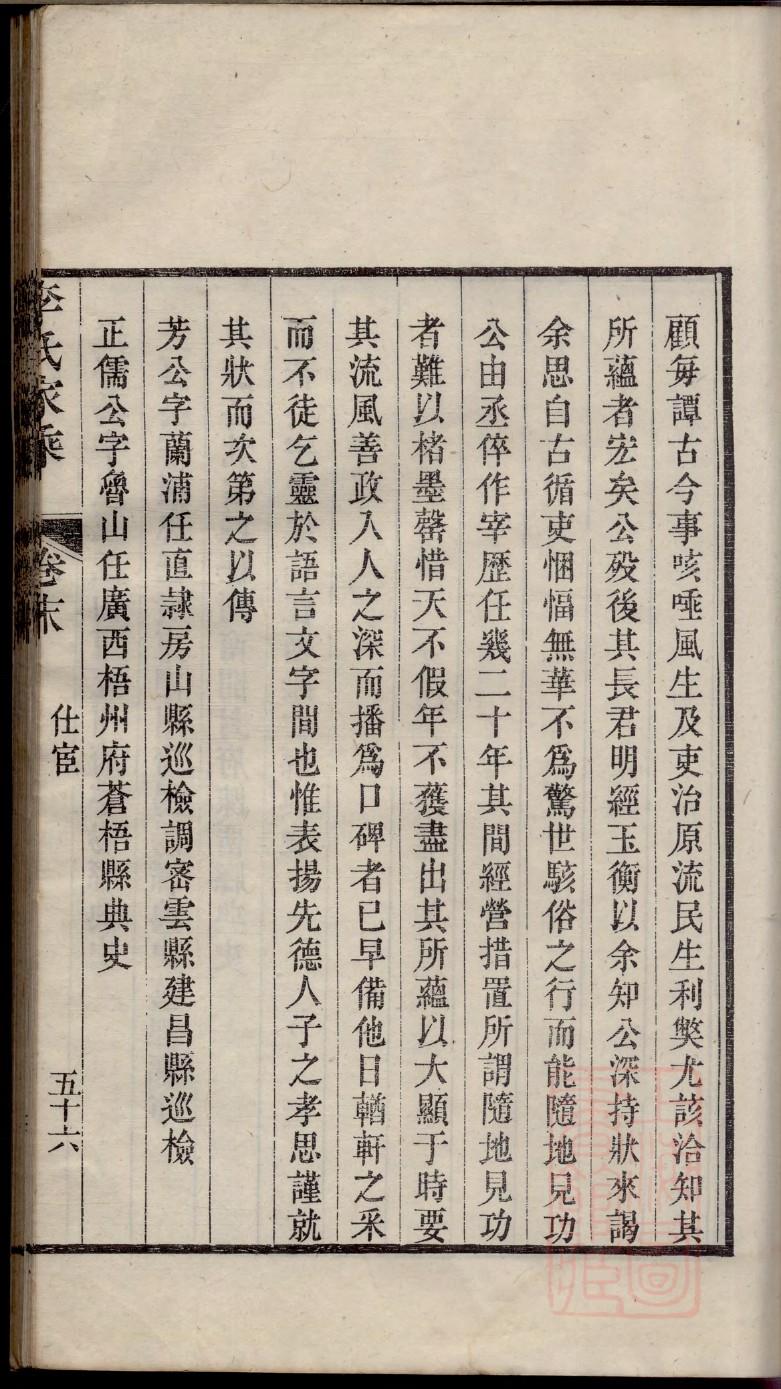 顧每譚古今事咳唾風生及吏治原流民生利獘尤該洽知其
所蘊者宏矣公歿後其長君明經玉衡以余知公深持狀來謁
余思自古循吏悃愊無華不爲驚世駭俗之行而能隨地見功
公由丞倅作宰歷任幾二十年其間經營措置所謂隨地見功
者難以楮墨罄惜天不假年不獲盡出其所蘊以大顯于時要
其流風善政入人之深而播爲口碑者已早備他日輶軒之采
而不徒乞靈於語言文字間也惟表揚先德人子之孝思謹就
其狀而次第之以傳
芳公字蘭浦任直隷房山縣巡檢調密雲縣建昌縣巡檢
正儒公字魯山任廣西梧州府蒼梧縣典史
李氏家乘 卷末 仕宦 五十六